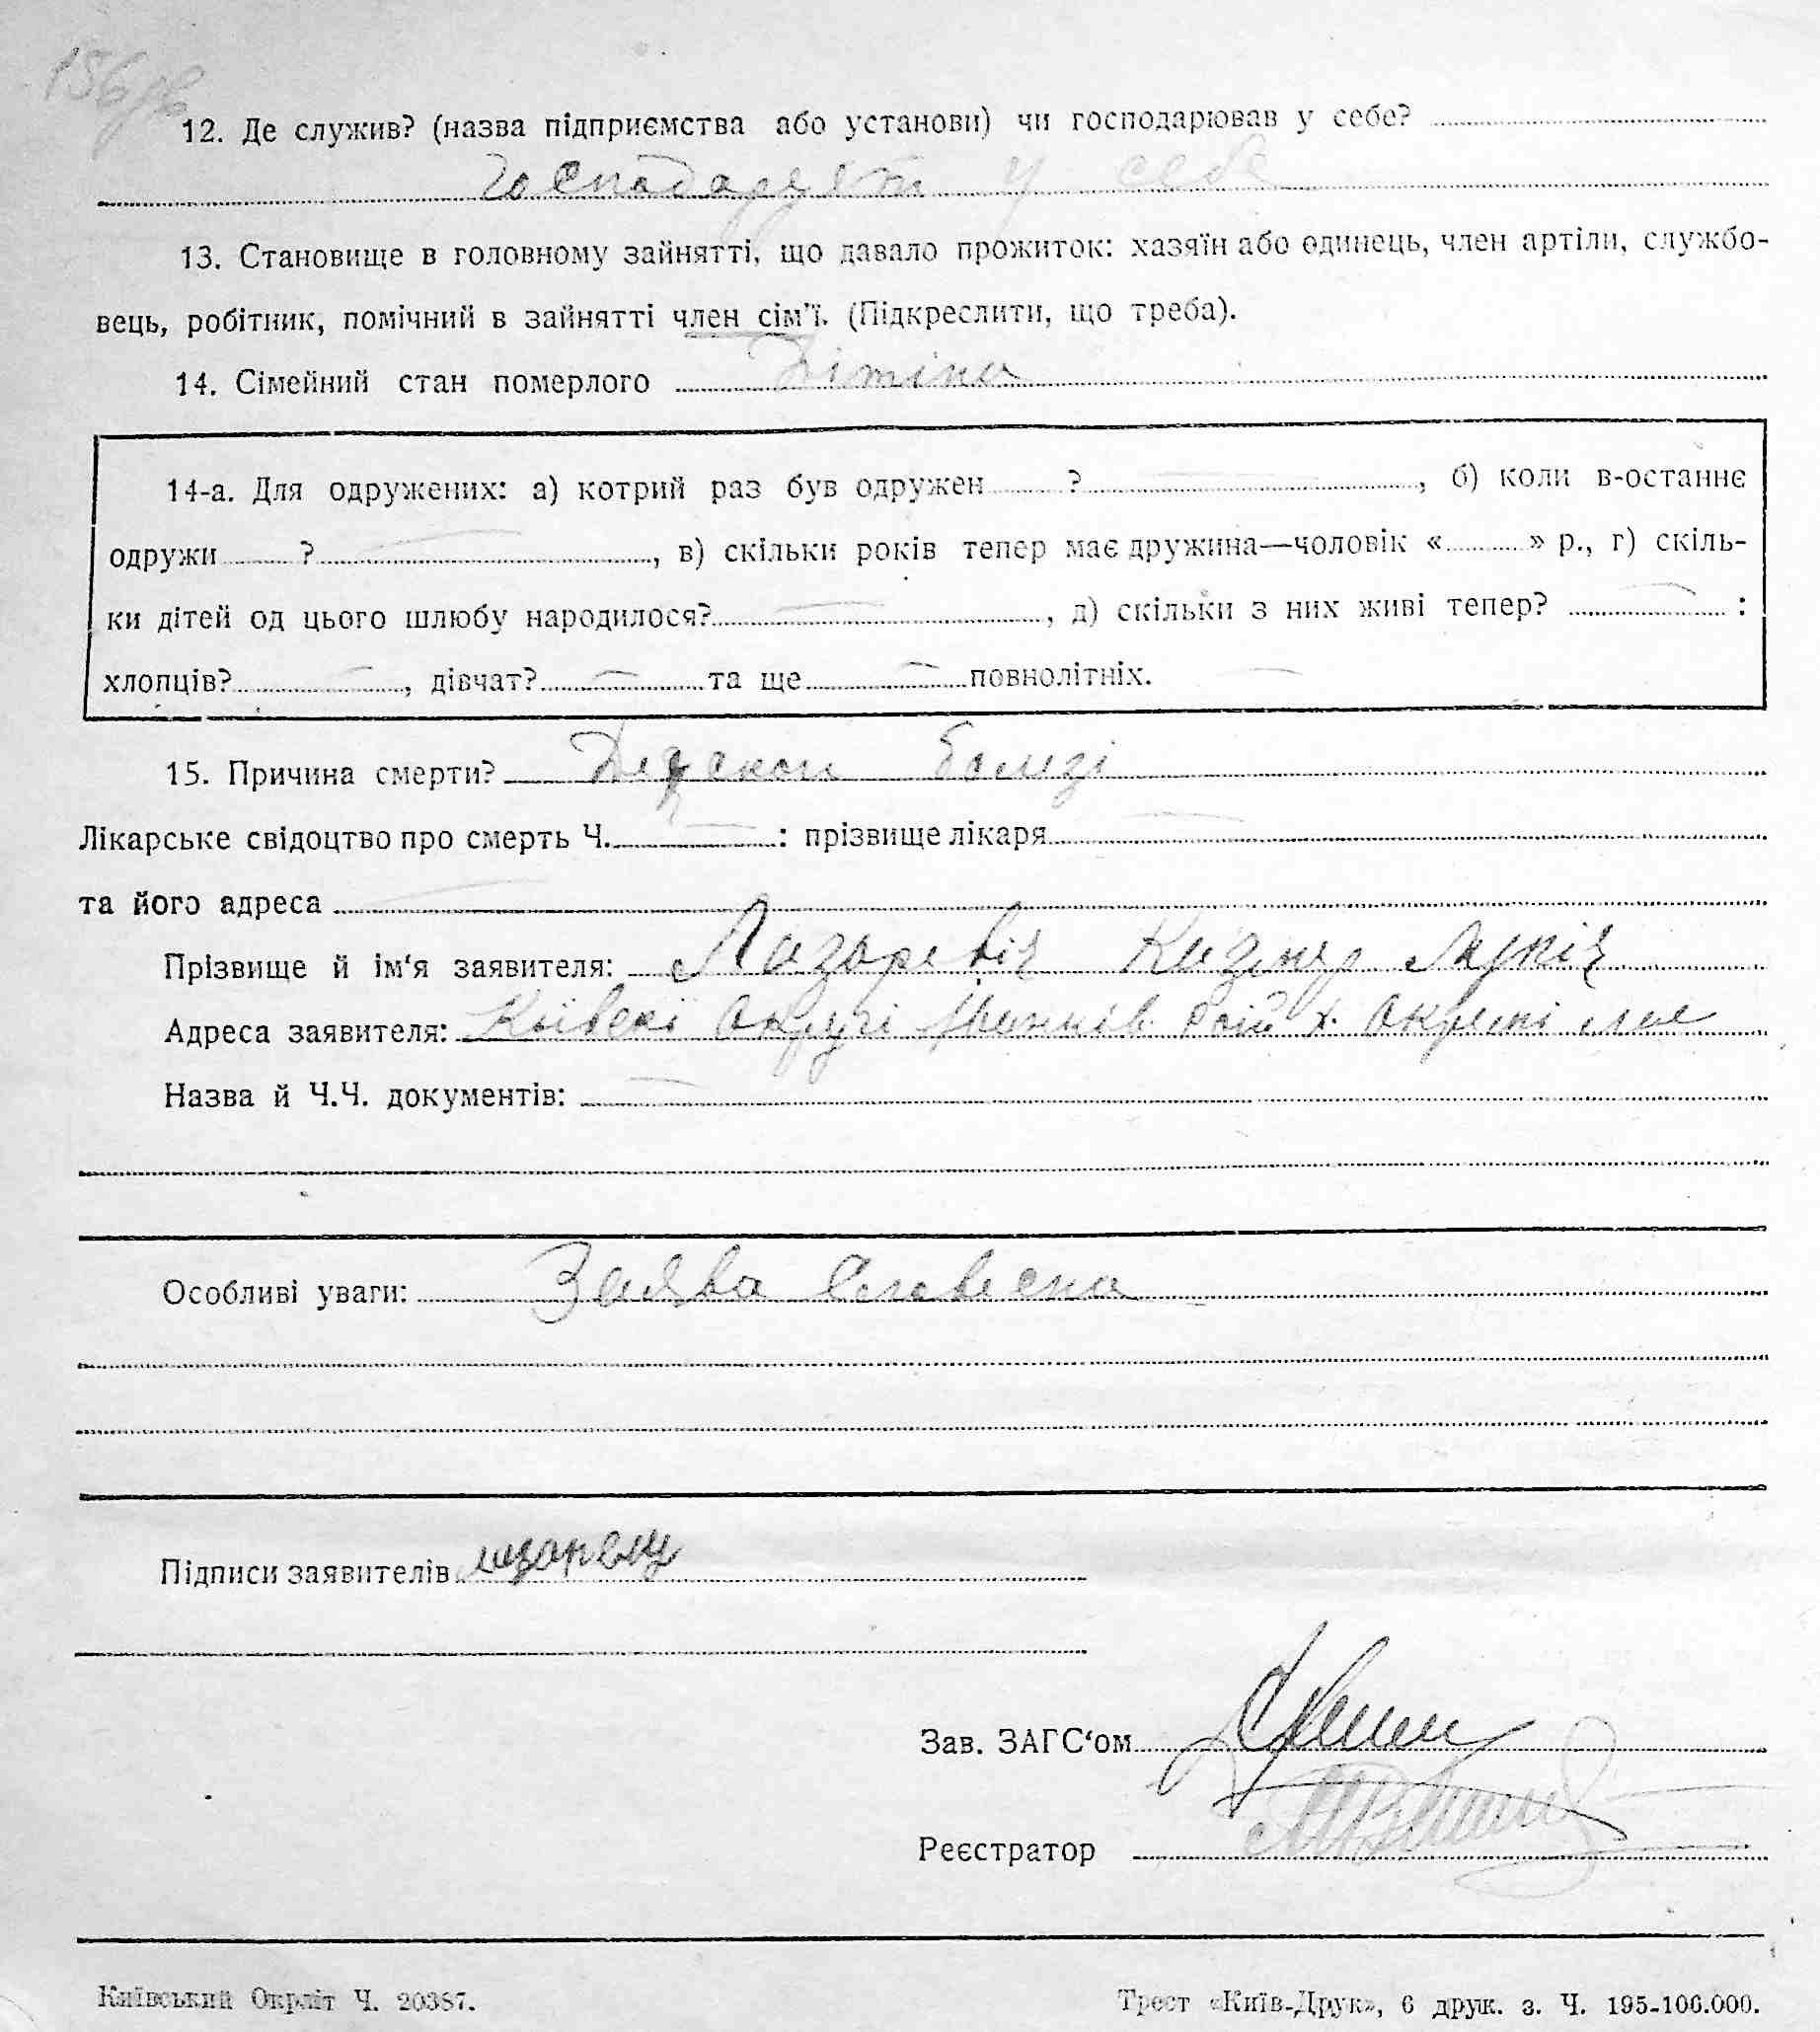 12. Де служив? (назва підприємства або установи) чи господарював у себе?
у себе
13. Становище в головному зайнятті, що давало прожиток: хазяїн або одинець, член артіли, службо-
вець, робітник, помічний в зайнятті член сім'ї. (Підкреслити, що треба).
14. Сімейний стан померлого Дітіна
14-а. Для одружених: а) котрий раз був одружен ? , б) коли в-останнє
одружи ? , в) скільки років тепер має дружина—чоловік « » р., г) скіль-
ки дітей од цього шлюбу народилося? , д) скільки з них живі тепер? :
хлопців? , дівчат? та ще повнолітніх.
15. Причина смерти?
Лікарське свідоцтво про смерть Ч. : прізвище лікаря
та його адреса
Прізвище й ім'я заявителя: Лазаревіч
Адреса заявителя: Київскі Округі
Назва й Ч.Ч. документів:
Особливі уваги: Заява Словесна
Підписи заявителів
Зав. ЗАГС'ом
Реєстратор
Київський Окрліт Ч. 20387.
Трест «Київ-Друк», 6 друк. з. Ч. 195-100.000.